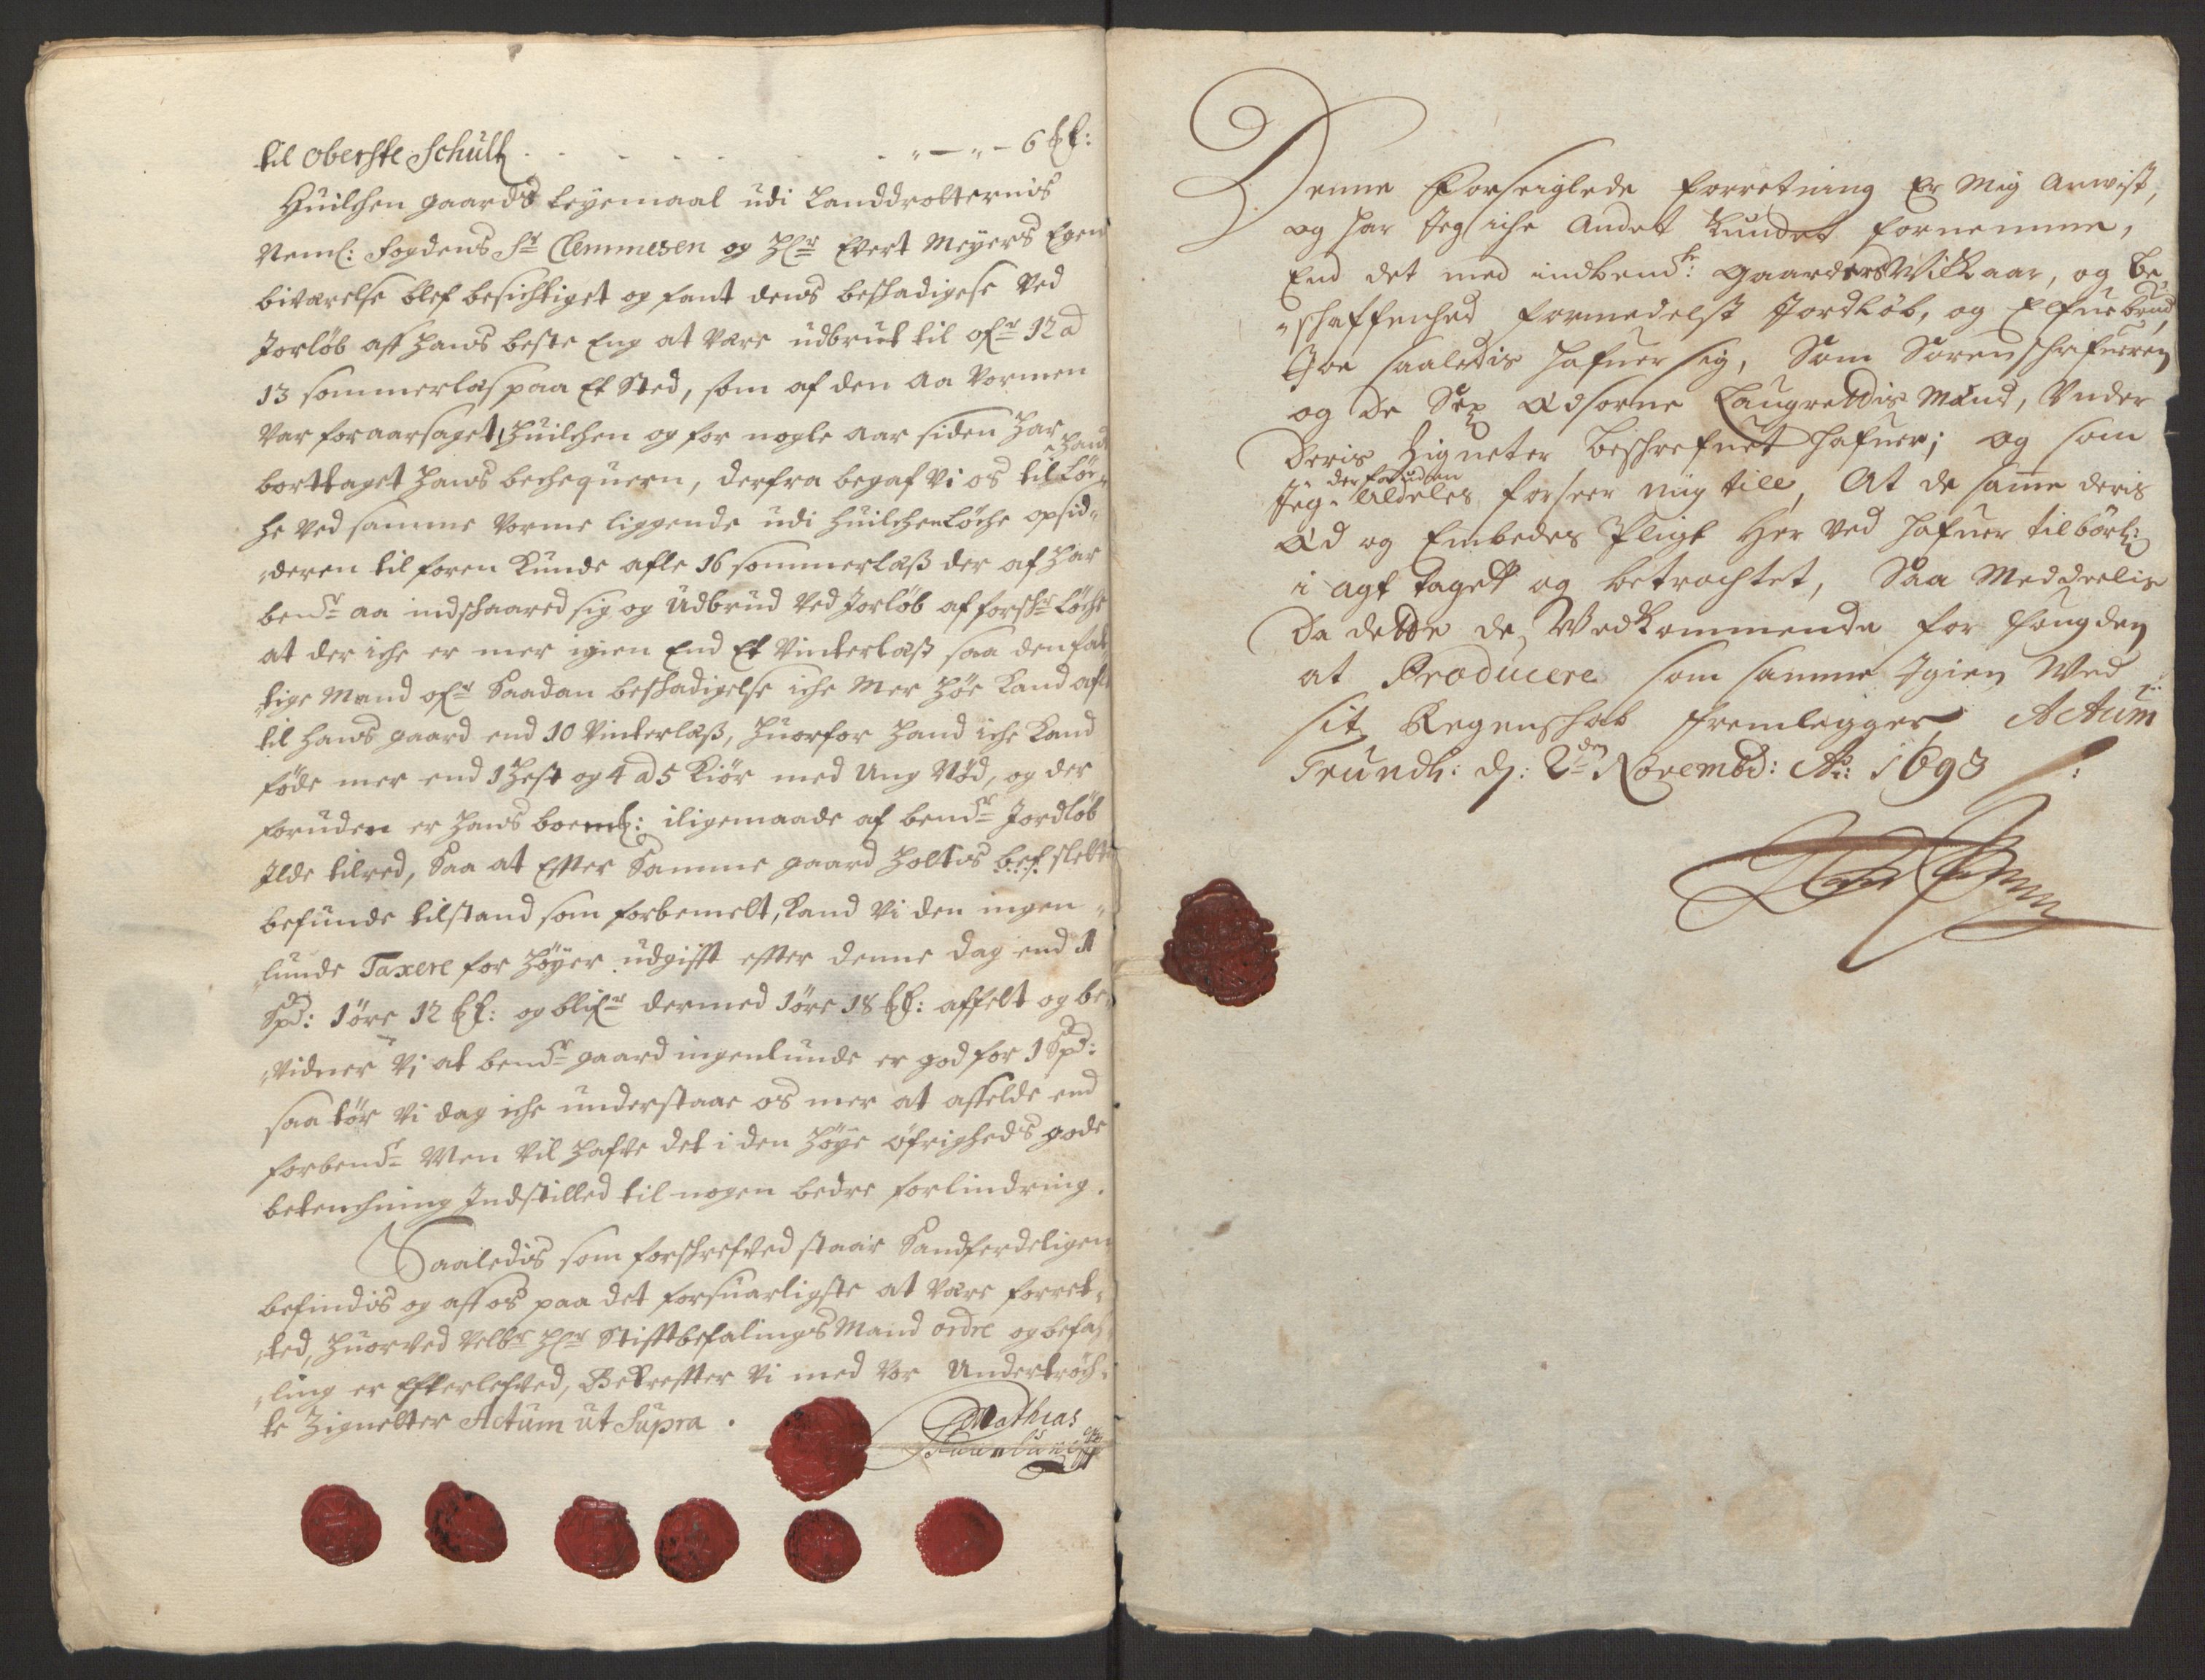 til Oberste Schultz . . . . . . „ — „ — 6 ℔:
Huilchen gaards leyemaal udi Landdrotternis
Neml: Fogdens Sr Clemmesen og Hr Evert Meyers Egen
biværelse blef besichtiget og fant dens beskadigese ved
Jorløb aff hans beste Eng at være udbrut til ofr 12 a
13 sommerlas paa Et Sted, som af den Aa Vormen
var foraarsaget, Huilchen og for nogle aar siden har
borttaget hans bechequern, derfra begaf vi os til Løc-
he ved samme Vorme liggende udi Huilchen Løche opsid-
deren til foren Kunde afle 16 sommerlass der af har
bende aa indskaared sig og udbrud ved Jorløb af forskr Løche
at der iche er mer igien End Et vinterlass saa den fat-
tige Mand ofr Saadan beskadigelse iche Mer Høe Kand afle
til hans gaard end 10 vinterlass, huorfor hand iche Kand
føde mer end 1 Hest og 4 a 5 Kiør med Ung Nød, og der
foruden er hans iligemaade af bende Jordløb
Ilde tilred, Saa at Efter Samme gaard holtis bef. slette
befunde tilstand som forbemelt, Kand vi den ingen-
lunde Taxere for høyer udgifft efter denne dag end 1
Spd: 1 øre 12 ℔: og blifr dermed 1 øre 18 ℔: affelt og be-
vidner vi at bende gaard ingenlunde er god for 1 Spd:
saa tør vi dog iche understaae os mer at affelde end
forbende Men vil hafve det i den høye øfrigheds gode
betenchning Indstilled til nogen bedre forlindring.
Saaledis som forskrefved staar Sandferdeligen
befindis og aff os paa det forsuarligste at være forret-
ted, huorved Velbr Hr Stifftbefalings Mand ordre og befa-
ling er Efterlefved, Bekreffter vi med vor Undertrøch-
te Zignetter Actum ut Supra.
Mathias
Denne Forseiglede forretning Er Mig Anvist,
og har Jeg iche Andet Kundet fornemme,
End det med indbende: gaarders Vilkaar, og be-
schaffenhed formedelst Jordløb, og Elfuebrud,
Joe saaledis hafuer sig, Som Sorenschrifueren
og de Sex Edsorne Laugrettis Mænd, Under
Deris Zigneter beschrefuet hafuer; og som
Jeg derforuden Aldeles forseer mig till, At de samme deris
Ed og Embedes Pligt Her ved hafuer tilbørl:
i agt taget og betrachtet, Saa Meddeelis
da dette de Vedkommende for Fougden
at Producere som samme Igien Ved
sit Regenschab fremlegger Actum
Trundh: d: 2den Novembd: Ao: 1693